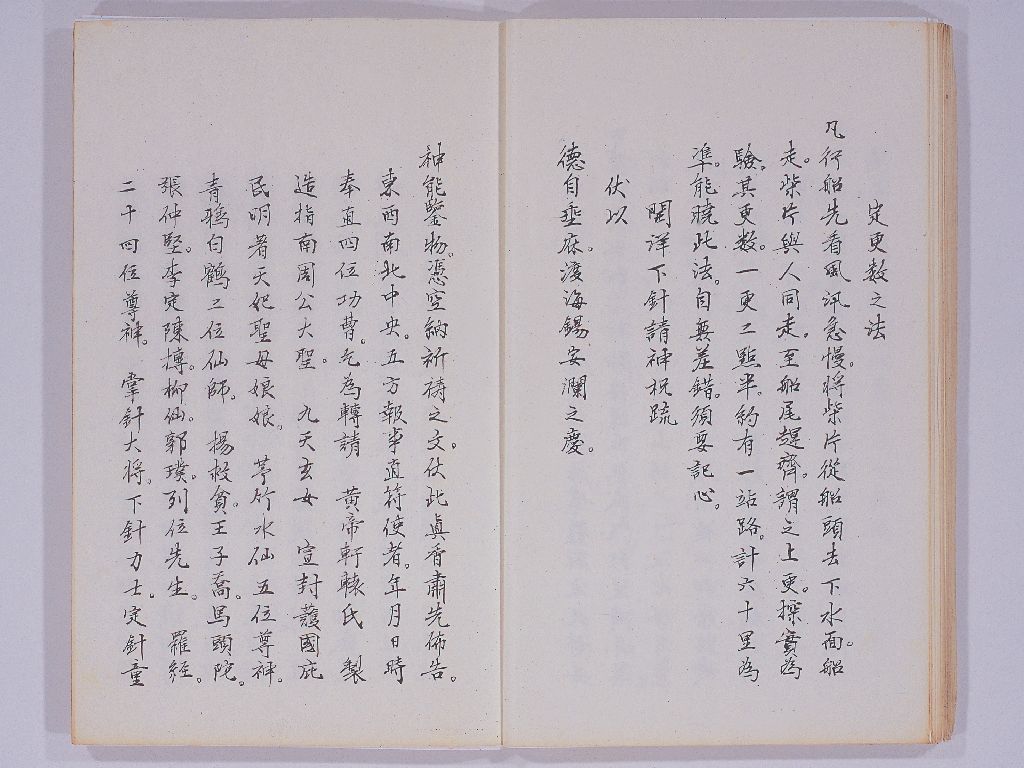 定更数之法
凡行船先看風汛急慢。將柴片從船頭去下水面。船
走。柴片與人同走。至船尾趕齊。謂之上更。探實為
驗。其更数。一更二點半。約有一站路。計六十里為
準。能曉此法。自無差錯。須要記心。
開洋下針請神祝疏
伏以
德自垂庥。渡海錫安瀾之慶。
神能鑒物。憑空納祈禱之文。仗此真香肅先佈告。
東西南北中央。五方報事直符使者。年月日時
奉直四位功曹。乞為轉請 黃帝軒轅氏 製
造指南周公大聖。 九天玄女 宣封護國庇
民明著天妃聖母娘娘。 茅竹水仙五位尊神。
青鴉白鶴二位仙師。 楊救貧。王子喬。馬頭陀。
張仲堅。李定。陳摶。柳仙。郭璞。列位先生。 羅經。
二十四位尊神。 掌針大將。下針力士。定針童